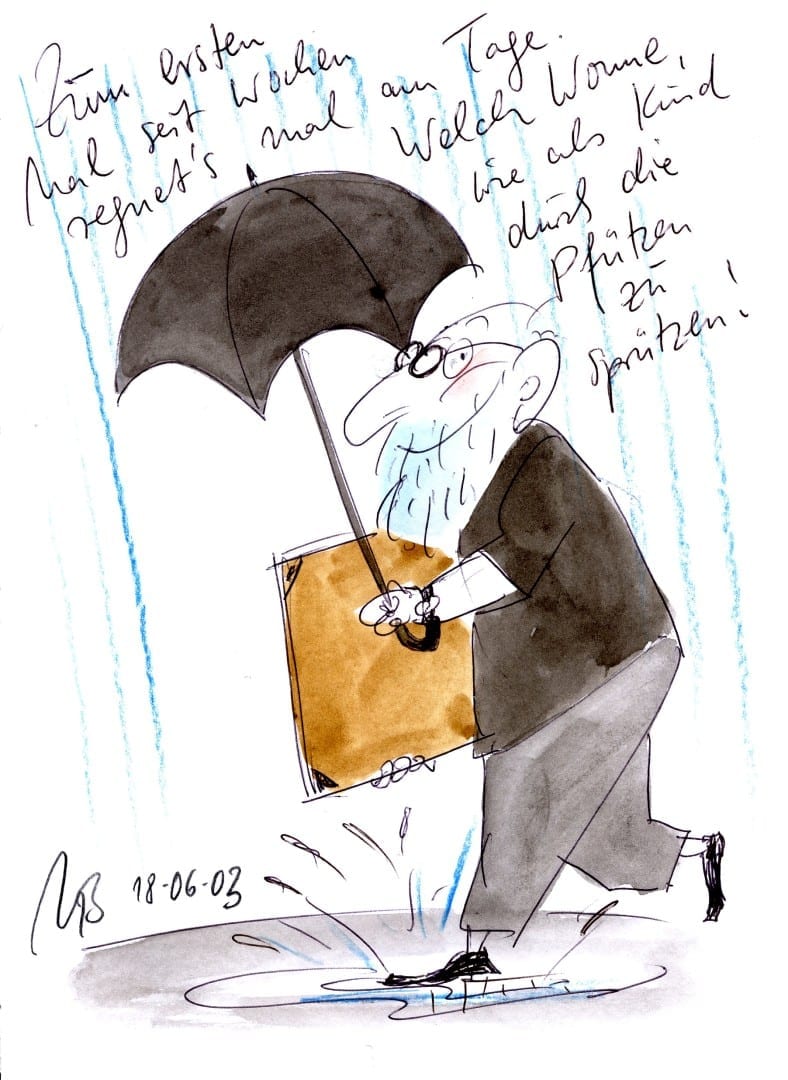 Zum ersten
Mal seit Wochen
regnet's mal am Tage.
Welch Wonne,
wie als Kind
durch die
Pfützen
zu
sprützen!
18-06-03